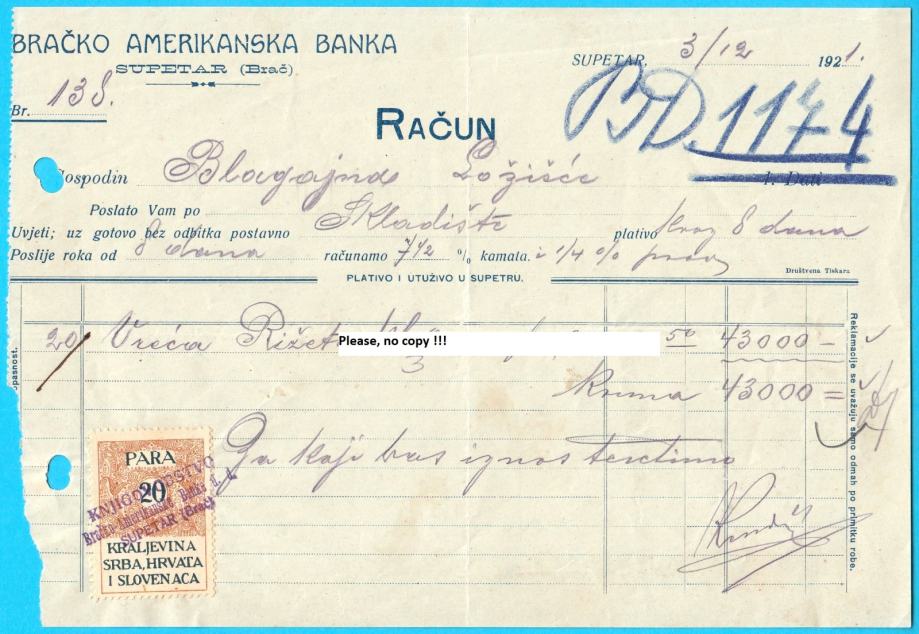 BRAČKO AMERIKANSKA BANKA
SUPETAR (Brač)
SUPETAR, 3/12 1921.
Br. 138.
BD. 1174
RAČUN
Gospodin Blagajna Ložišće
1. Dati
Poslato Vam po
Uvjeti; uz gotovo bez odbitka postavno Skladište plativo kroz 8 dana
Poslije roka od 8 dana računamo 7 1/2 % kamata. i 1/4 % prov
Društvena Tiskara
PLATIVO I UTUŽIVO U SUPETRU.
20/ Vreća 50 43000 -
Please, no copy !!!
Kruna 43000 =
Za koji vas iznos teretimo
PARA
20
KRALJEVINA
SRBA, HRVATA
I SLOVENACA
KNJIGOVODSTVO
Bračko Amerikanske Banke d. d.
SUPETAR (Brač)
Reklamacije se uvažuju samo odmah po primitku robe.